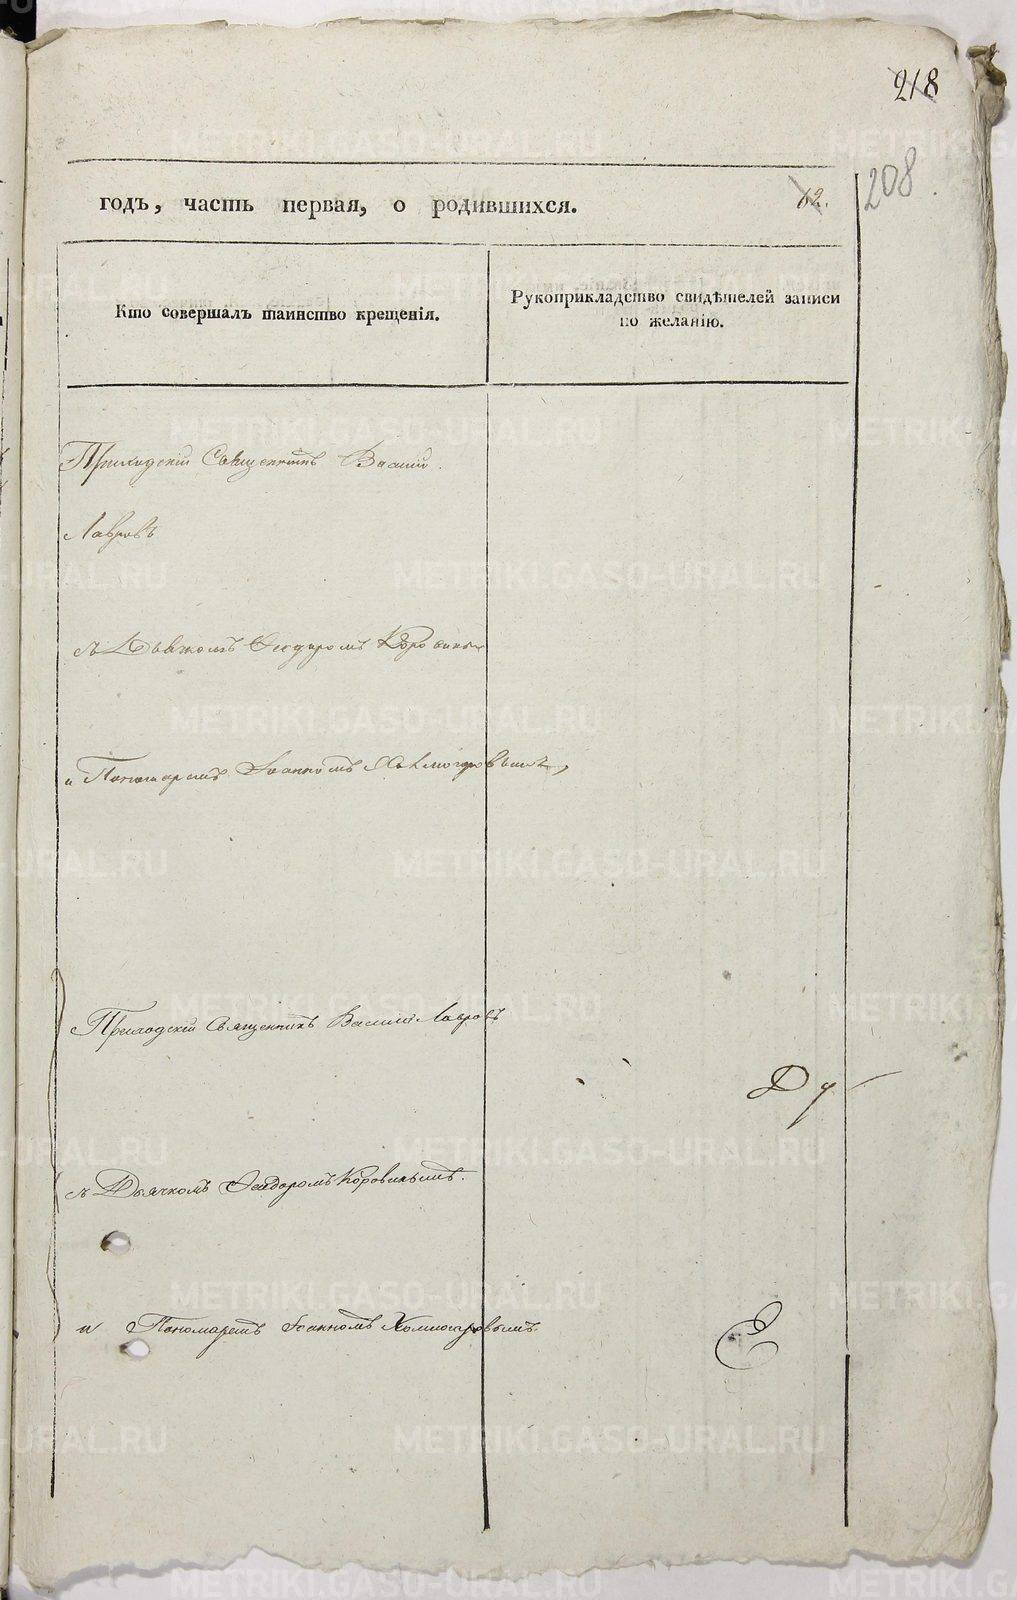 218
208.
годъ, часть первая, о родившихся.
62.
Кто совершалъ таинство крещенія.
Рукоприкладство свидѣтелей записи по желанію.
Приходскій Священникъ Василій
Лавровъ
съ Дьячкомъ Ѳеодоромъ
и Пономаремъ Іоанномъ
Приходскій Священникъ Василій Лавровъ
съ Дьячкомъ Ѳеодоромъ Коровинымъ.
и Пономаремъ Іоанномъ Холмогоровымъ.
METRIKI.GASO-URAL.RU